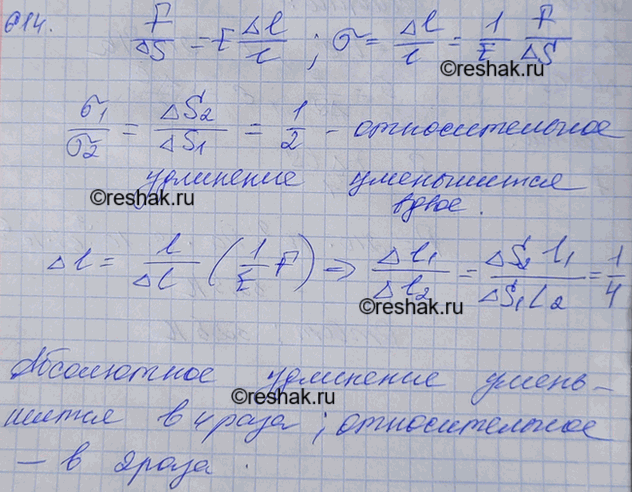 614. F/ΔS = E Δl/l ; σ = Δl/l = 1/E F/ΔS
©reshak.ru
σ1/σ2 = ΔS2/ΔS1 = 1/2 - относительное
©reshak.ru
удлинение уменьшится
вдвое.
Δl = l/Δl (1/E F) => Δl1/Δl2 = ΔS2 l1/ΔS1 l2 = 1/4
©reshak.ru
Абсолютное удлинение умень-
©reshak.ru
шится в 4 раза; относительное
- в 2 раза.